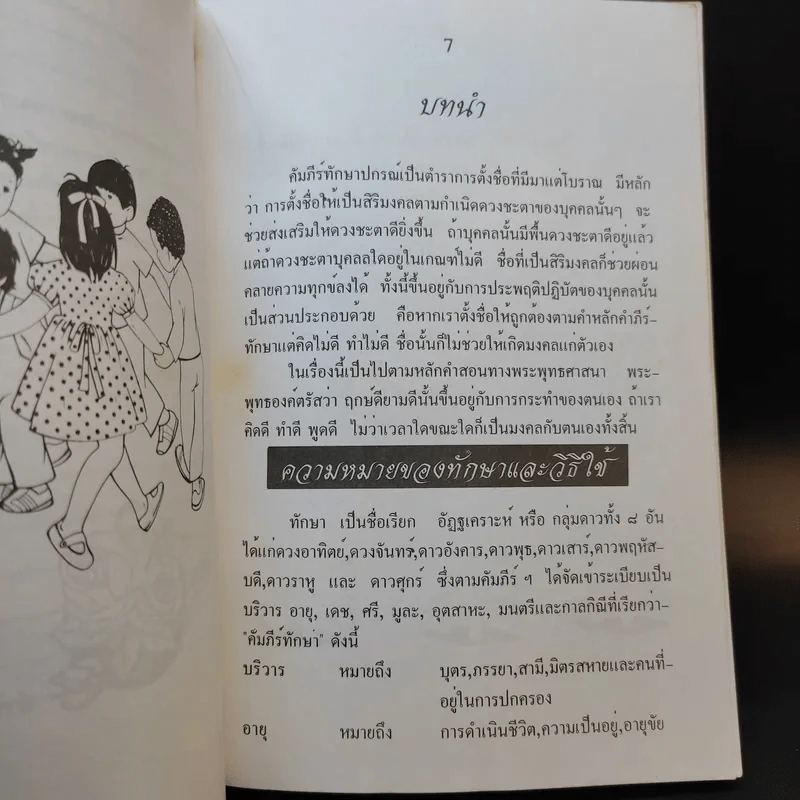 7
บทนำ
คัมภีร์ทักษาปกรณ์เป็นตำราการตั้งชื่อที่มีมาแต่โบราณ มีหลัก
ว่า การตั้งชื่อให้เป็นสิริมงคลตามกำเนิดดวงชะตาของบุคคลนั้นๆ จะ
ช่วยส่งเสริมให้ดวงชะตาดียิ่งขึ้น ถ้าบุคคลนั้นมีพื้นดวงชะตาดีอยู่แล้ว
แต่ถ้าดวงชะตาบุคลลใดอยู่ในเกณฑ์ไม่ดี ชื่อที่เป็นสิริมงคลก็ช่วยผ่อน
คลายความทุกข์ลงได้ ทั้งนี้ขึ้นอยู่กับการประพฤติปฏิบัติของบุคคลนั้น
เป็นส่วนประกอบด้วย คือหากเราตั้งชื่อให้ถูกต้องตามคำหลักคำภีร์-
ทักษาแต่คิดไม่ดี ทำไม่ดี ชื่อนั้นก็ไม่ช่วยให้เกิดมงคลแก่ตัวเอง
ในเรื่องนี้เป็นไปตามหลักคำสอนทางพระพุทธศาสนา พระ-
พุทธองค์ตรัสว่า ฤกษ์ดียามดีนั้นขึ้นอยู่กับการกระทำของตนเอง ถ้าเรา
คิดดี ทำดี พูดดี ไม่ว่าเวลาใดขณะใดก็เป็นมงคลกับตนเองทั้งสิ้น
ความหมายของทักษาและวิธีใช้
ทักษา เป็นชื่อเรียก อัฏฐเคราะห์ หรือ กลุ่มดาวทั้ง ๘ อัน
ได้แก่ดวงอาทิตย์,ดวงจันทร์,ดาวอังคาร,ดาวพุธ,ดาวเสาร์,ดาวพฤหัส-
บดี,ดาวราหู และ ดาวศุกร์ ซึ่งตามคัมภีร์ ฯ ได้จัดเข้าระเบียบเป็น
บริวาร อายุ, เดช, ศรี, มูละ, อุตสาหะ, มนตรีและกาลกิณีที่เรียกว่า-
"คัมภีร์ทักษา" ดังนี้
บริวาร หมายถึง บุตร,ภรรยา,สามี,มิตรสหายและคนที่-
อยู่ในการปกครอง
อายุ หมายถึง การดำเนินชีวิต,ความเป็นอยู่,อายุขัย